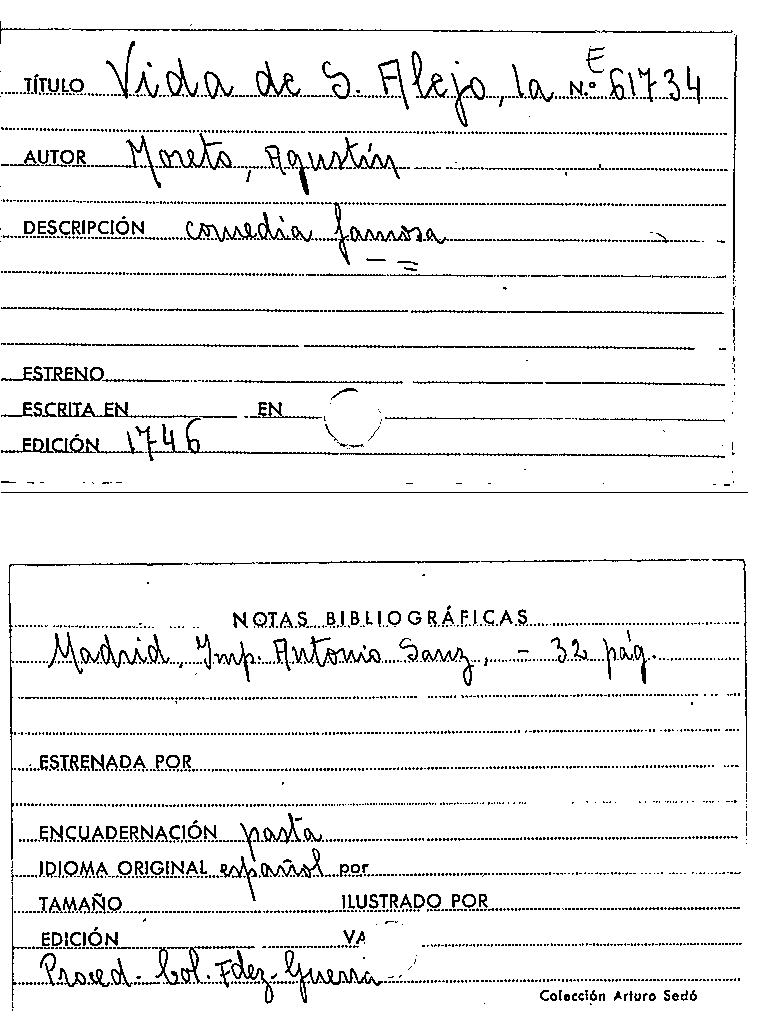 TÍTULO Vida de S. Alejo, la N.º E 61734
AUTOR Moreto, Agustín
DESCRIPCIÓN comedia famosa
ESTRENO
ESCRITA EN EN
EDICIÓN 1746
NOTAS BIBLIOGRÁFICAS
Madrid, Imp. Antonio Sanz, - 32 pág.
ESTRENADA POR
ENCUADERNACIÓN pasta
IDIOMA ORIGINAL español por
TAMAÑO ILUSTRADO POR
EDICIÓN VA
Proced- Col. Fdez-Guerra
Colección Arturo Sedó